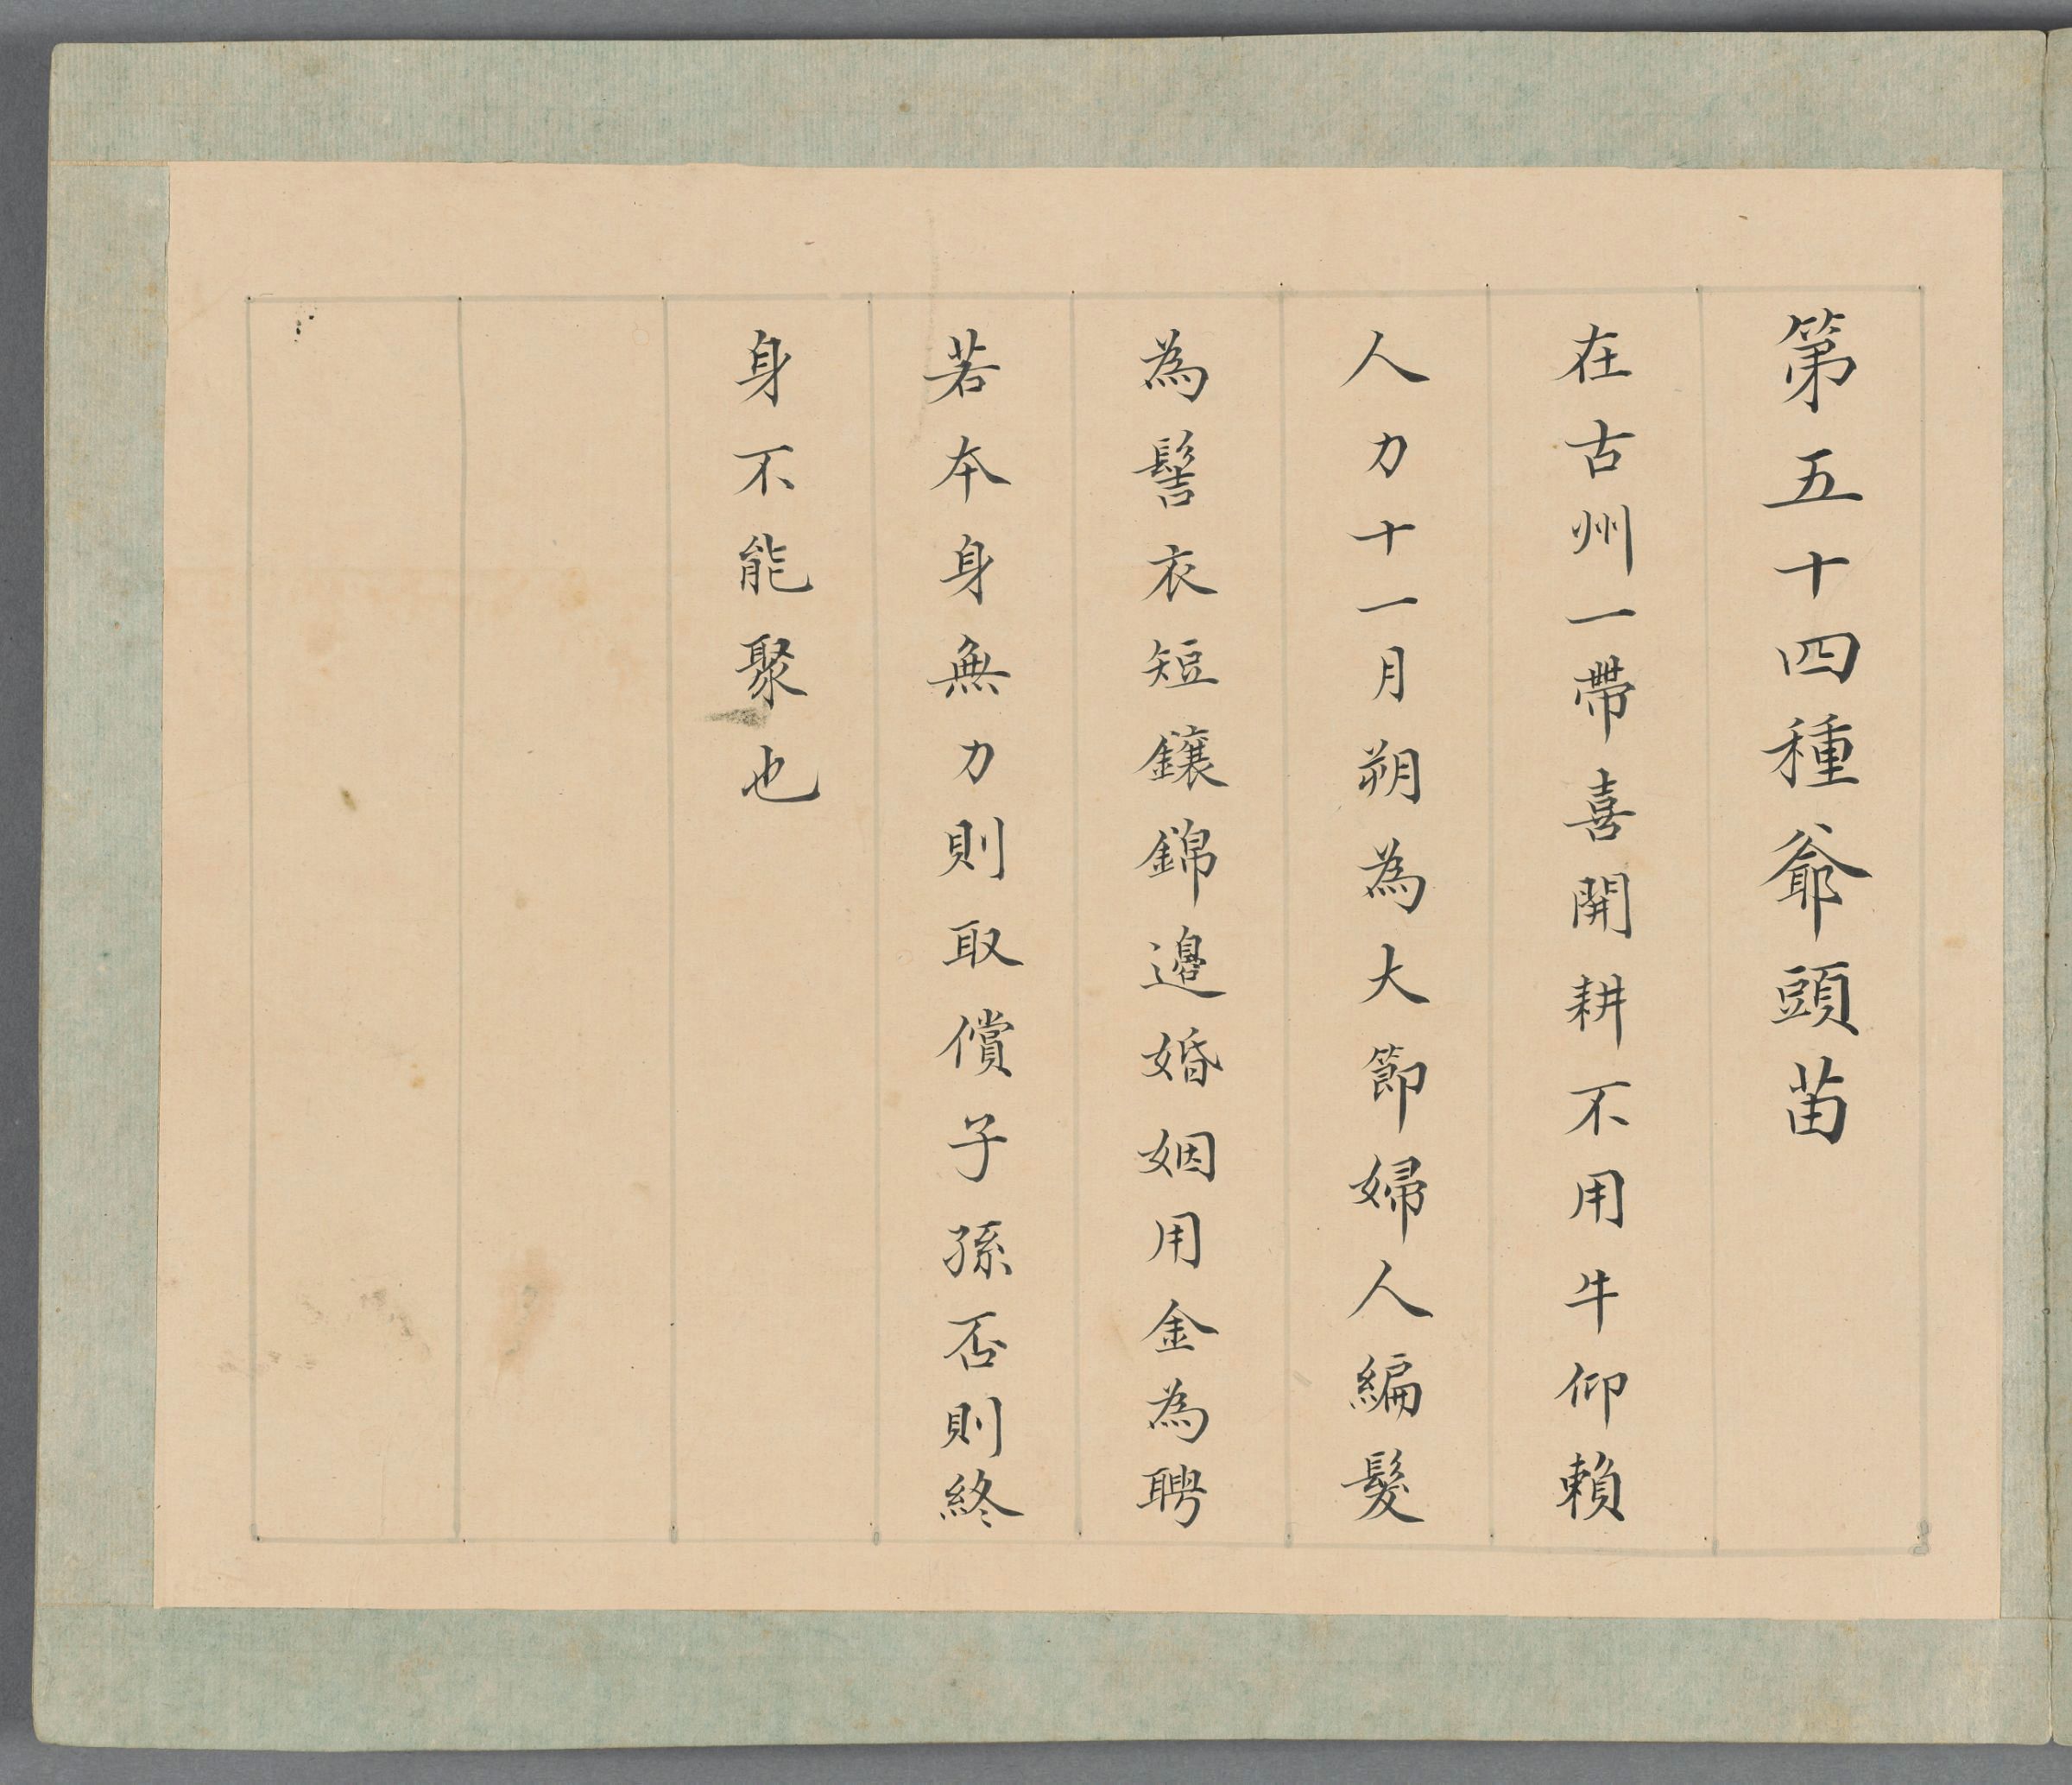 第五十四種爺頭苗
在古州一帶喜開耕不用牛仰賴
人力十一月朔為大節婦人編髮
為髻衣短鑲錦邊婚姻用金為聘
若本身無力則取償子孫否則終
身不能聚也